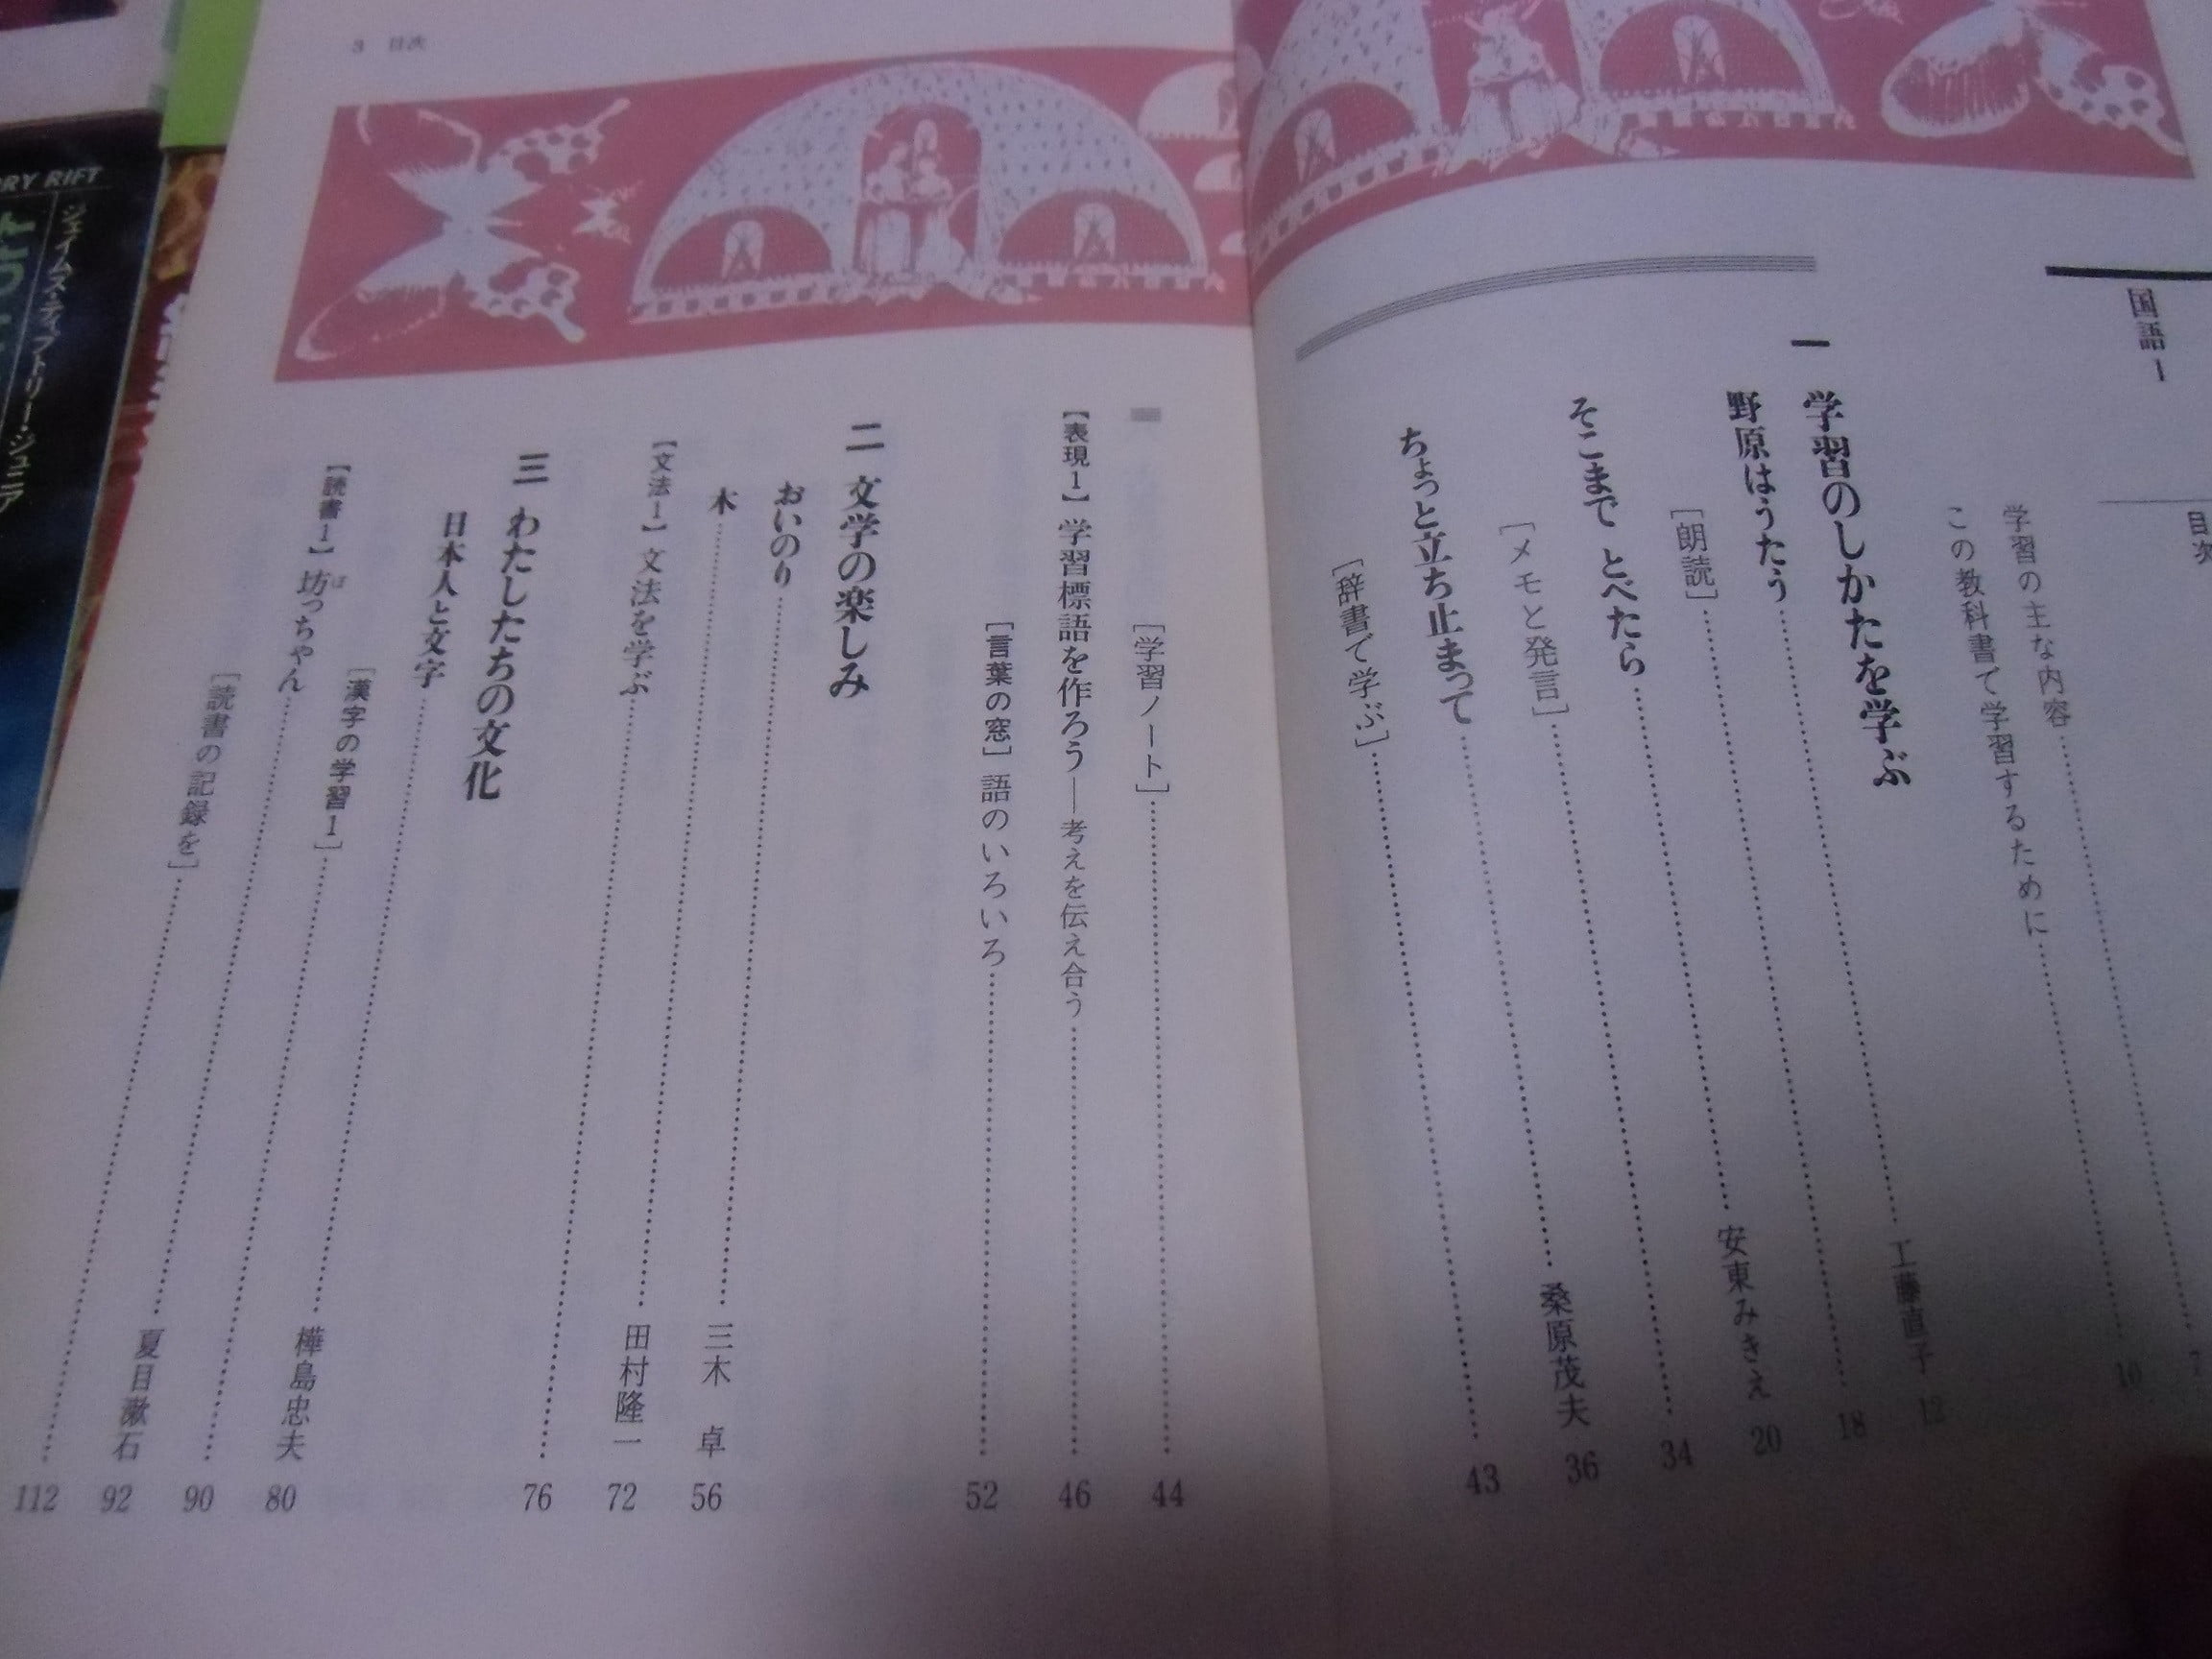 国語 1
目次
学習の主な内容 7
この教科書で学習するために 10
一 学習のしかたを学ぶ
野原はうたう 工藤直子 12
［朗読］ 18
そこまで とべたら 安東みきえ 20
［メモと発言］ 34
ちょっと立ち止まって 桑原茂夫 36
［辞書で学ぶ］ 43
3 目次
［学習ノート］ 44
【表現1】 学習標語を作ろう―考えを伝え合う 46
［言葉の窓］ 語のいろいろ 52
二 文学の楽しみ
おいのり 三木 卓 56
木 田村隆一 72
【文法1】 文法を学ぶ 76
三 わたしたちの文化
日本人と文字 樺島忠夫 80
［漢字の学習1］ 90
【読書1】 坊っちゃん 夏目漱石 92
ぼ
［読書の記録を］ 112
RRY RIFT
ジェイムズ・ティプトリー・ジュニア